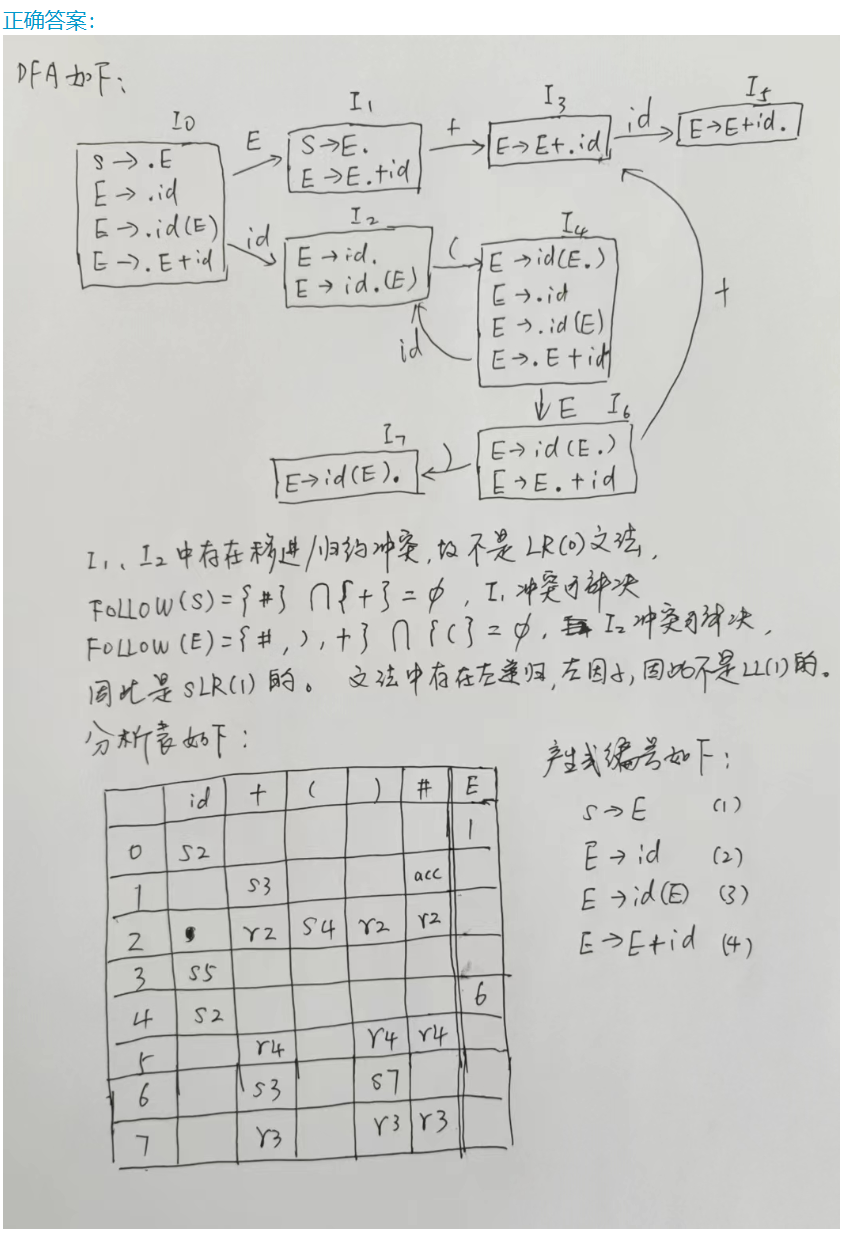 正确答案：
DFA如下：
I0
S→.E
E→.id
E→.id(E)
E→.E+id
E
I1
S→E.
E→E.+id
+
I3
E→E+.id
id
I5
E→E+id.
id
I2
E→id.
E→id.(E)
(
id
I4
E→id(E.)
E→.id
E→.id(E)
E→.E+id
+
E
I6
E→id(E.)
E→E.+id
)
I7
E→id(E).
I1、I2中存在移进/归约冲突,故不是LR(0)文法,
FOLLOW(S)={#}∩{+}=ϕ, I1冲突可解决
FOLLOW(E)={#,),+}∩{(}=ϕ, I2冲突可解决,
因此是SLR(1)的。 文法中存在左递归,左因子,因此不是LL(1)的。
分析表如下：
id + ( ) # E
0 S2 1
1 S3 acc
2 r2 S4 r2 r2
3 S5
4 S2 6
5 r4 r4 r4
6 S3 S7
7 r3 r3 r3
产生式编号如下：
S→E (1)
E→id (2)
E→id(E) (3)
E→E+id (4)